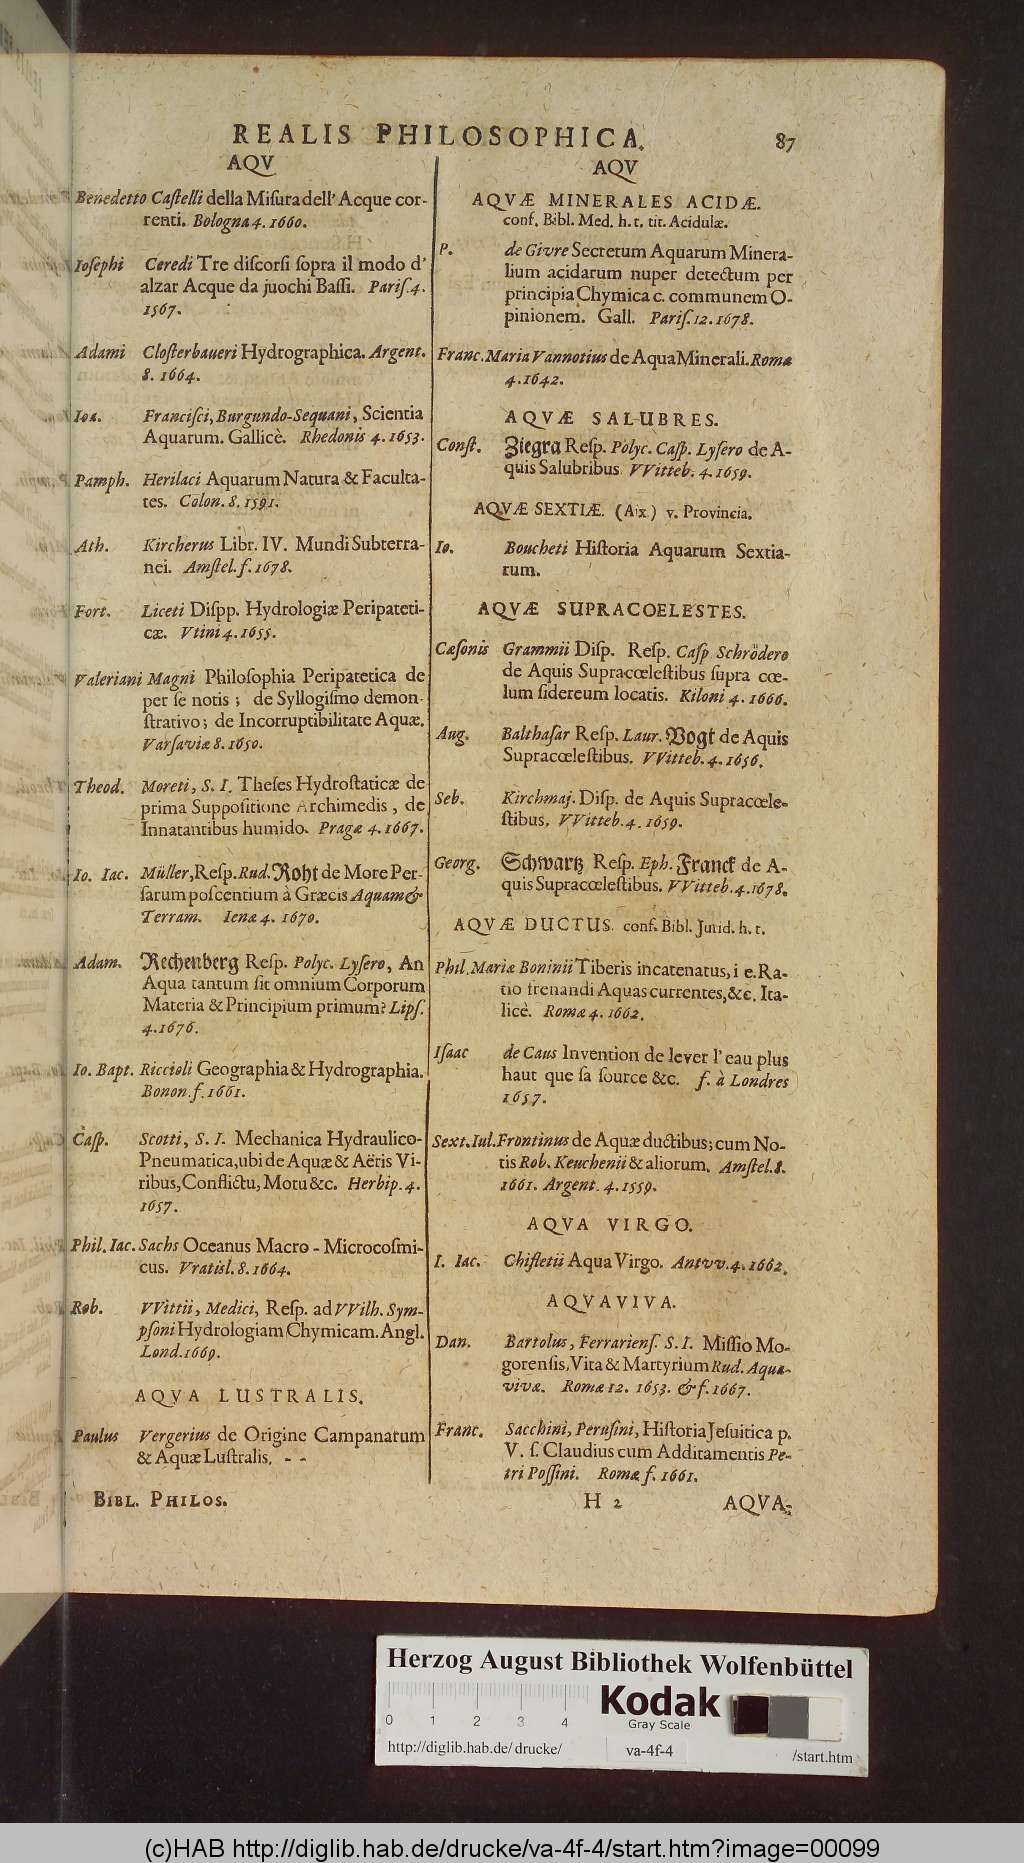 REALIS PHILOSOPHICA. 87
AQV
Benedetto Caſtelli della Miſura dell' Acque cor-
renti. Bologna 4. 1660.
Ioſephi Ceredi Tre diſcorſi ſopra il modo d'
alzar Acque da juochi Baſſi. Pariſ. 4.
1567.
Adami Cloſterbaueri Hydrographica. Argent.
8. 1664.
Ioa. Franciſci, Burgundo-Sequani, Scientia
Aquarum. Gallicè. Rhedonis 4. 1653.
Pamph. Herilaci Aquarum Natura & Faculta-
tes. Colon. 8. 1591.
Ath. Kircherus Libr. IV. Mundi Subterra-
nei. Amſtel. f. 1678.
Fort. Liceti Diſpp. Hydrologiæ Peripateti-
cæ. Vtini 4. 1655.
Valeriani Magni Philoſophia Peripatetica de
per ſe notis; de Syllogiſmo demon-
ſtrativo; de Incorruptibilitate Aquæ.
Varſaviæ 8. 1650.
Theod. Moreti, S. I. Theſes Hydroſtaticæ de
prima Suppoſitione Archimedis, de
Innatantibus humido. Pragæ 4. 1667.
Io. Iac. Müller, Reſp. Rud. Roht de More Per-
ſarum poſcentium à Græcis Aquam &
Terram. Ienæ 4. 1670.
Adam. Rechenberg Reſp. Polyc. Lyſero, An
Aqua tantum ſit omnium Corporum
Materia & Principium primum? Lipſ.
4. 1676.
Io. Bapt. Riccioli Geographia & Hydrographia.
Bonon. f. 1661.
Caſp. Scotti, S. I. Mechanica Hydraulico-
Pneumatica, ubi de Aquæ & Aëris Vi-
ribus, Conflictu, Motu &c. Herbip. 4.
1657.
Phil. Iac. Sachs Oceanus Macro-Microcoſmi-
cus. Vratisl. 8. 1664.
Rob. VVittii, Medici, Reſp. ad VVilh. Sym-
pſoni Hydrologiam Chymicam. Angl.
Lond. 1669.
AQVA LUSTRALIS.
Paulus Vergerius de Origine Campanarum
& Aquæ Luſtralis. - -
AQV
AQVÆ MINERALES ACIDÆ.
conf. Bibl. Med. h. t. tit. Acidulæ.
P. de Givre Secretum Aquarum Minera-
lium acidarum nuper detectum per
principia Chymica c. communem O-
pinionem. Gall. Pariſ. 12. 1678.
Franc. Maria Vannotius de Aqua Minerali. Romæ
4. 1642.
AQVÆ SALUBRES.
Conſt. Ziegra Reſp. Polyc. Caſp. Lyſero de A-
quis Salubribus VVitteb. 4. 1659.
AQVÆ SEXTIÆ. (Aix) v. Provincia.
Io. Boucheti Hiſtoria Aquarum Sextia-
rum.
AQVÆ SUPRACOELESTES.
Cæſonis Grammii Diſp. Reſp. Caſp Schrödero
de Aquis Supracœleſtibus ſupra cœ-
lum ſidereum locatis. Kiloni 4. 1666.
Aug. Balthaſar Reſp. Laur. Vogt de Aquis
Supracœleſtibus. VVitteb. 4. 1656.
Seb. Kirchmaj. Diſp. de Aquis Supracœle-
ſtibus. VVitteb. 4. 1659.
Georg. Schwartz Reſp. Eph. Franck de A-
quis Supracœleſtibus. VVitteb. 4. 1678.
AQVÆ DUCTUS. conf. Bibl. Jurid. h. t.
Phil. Mariæ Boninii Tiberis incatenatus, i e. Ra-
tio frenandi Aquas currentes, &c. Ita-
licè. Romæ 4. 1662.
Iſaac de Caus Invention de lever l'eau plus
haut que ſa ſource &c. f. à Londres
1657.
Sext. Iul. Frontinus de Aquæ ductibus; cum No-
tis Rob. Keuchenii & aliorum. Amſtel. 8.
1661. Argent. 4. 1559.
AQVA VIRGO.
I. Iac. Chifletii Aqua Virgo. Antvv. 4. 1662.
AQVAVIVA.
Dan. Bartolus, Ferrarienſ. S. I. Miſſio Mo-
gorenſis, Vita & Martyrium Rud. Aqua-
vivæ. Romæ 12. 1653. & f. 1667.
Franc. Sacchini, Peruſini, Hiſtoria Jeſuitica p.
V. ſ. Claudius cum Additamentis Pe-
tri Poſſini. Romæ f. 1661.
BIBL. PHILOS. H 2 AQVA;
Herzog August Bibliothek Wolfenbüttel
Kodak
Gray Scale
0 1 2 3 4
http://diglib.hab.de/drucke/ va-4f-4 /start.htm
(c)HAB http://diglib.hab.de/drucke/va-4f-4/start.htm?image=00099